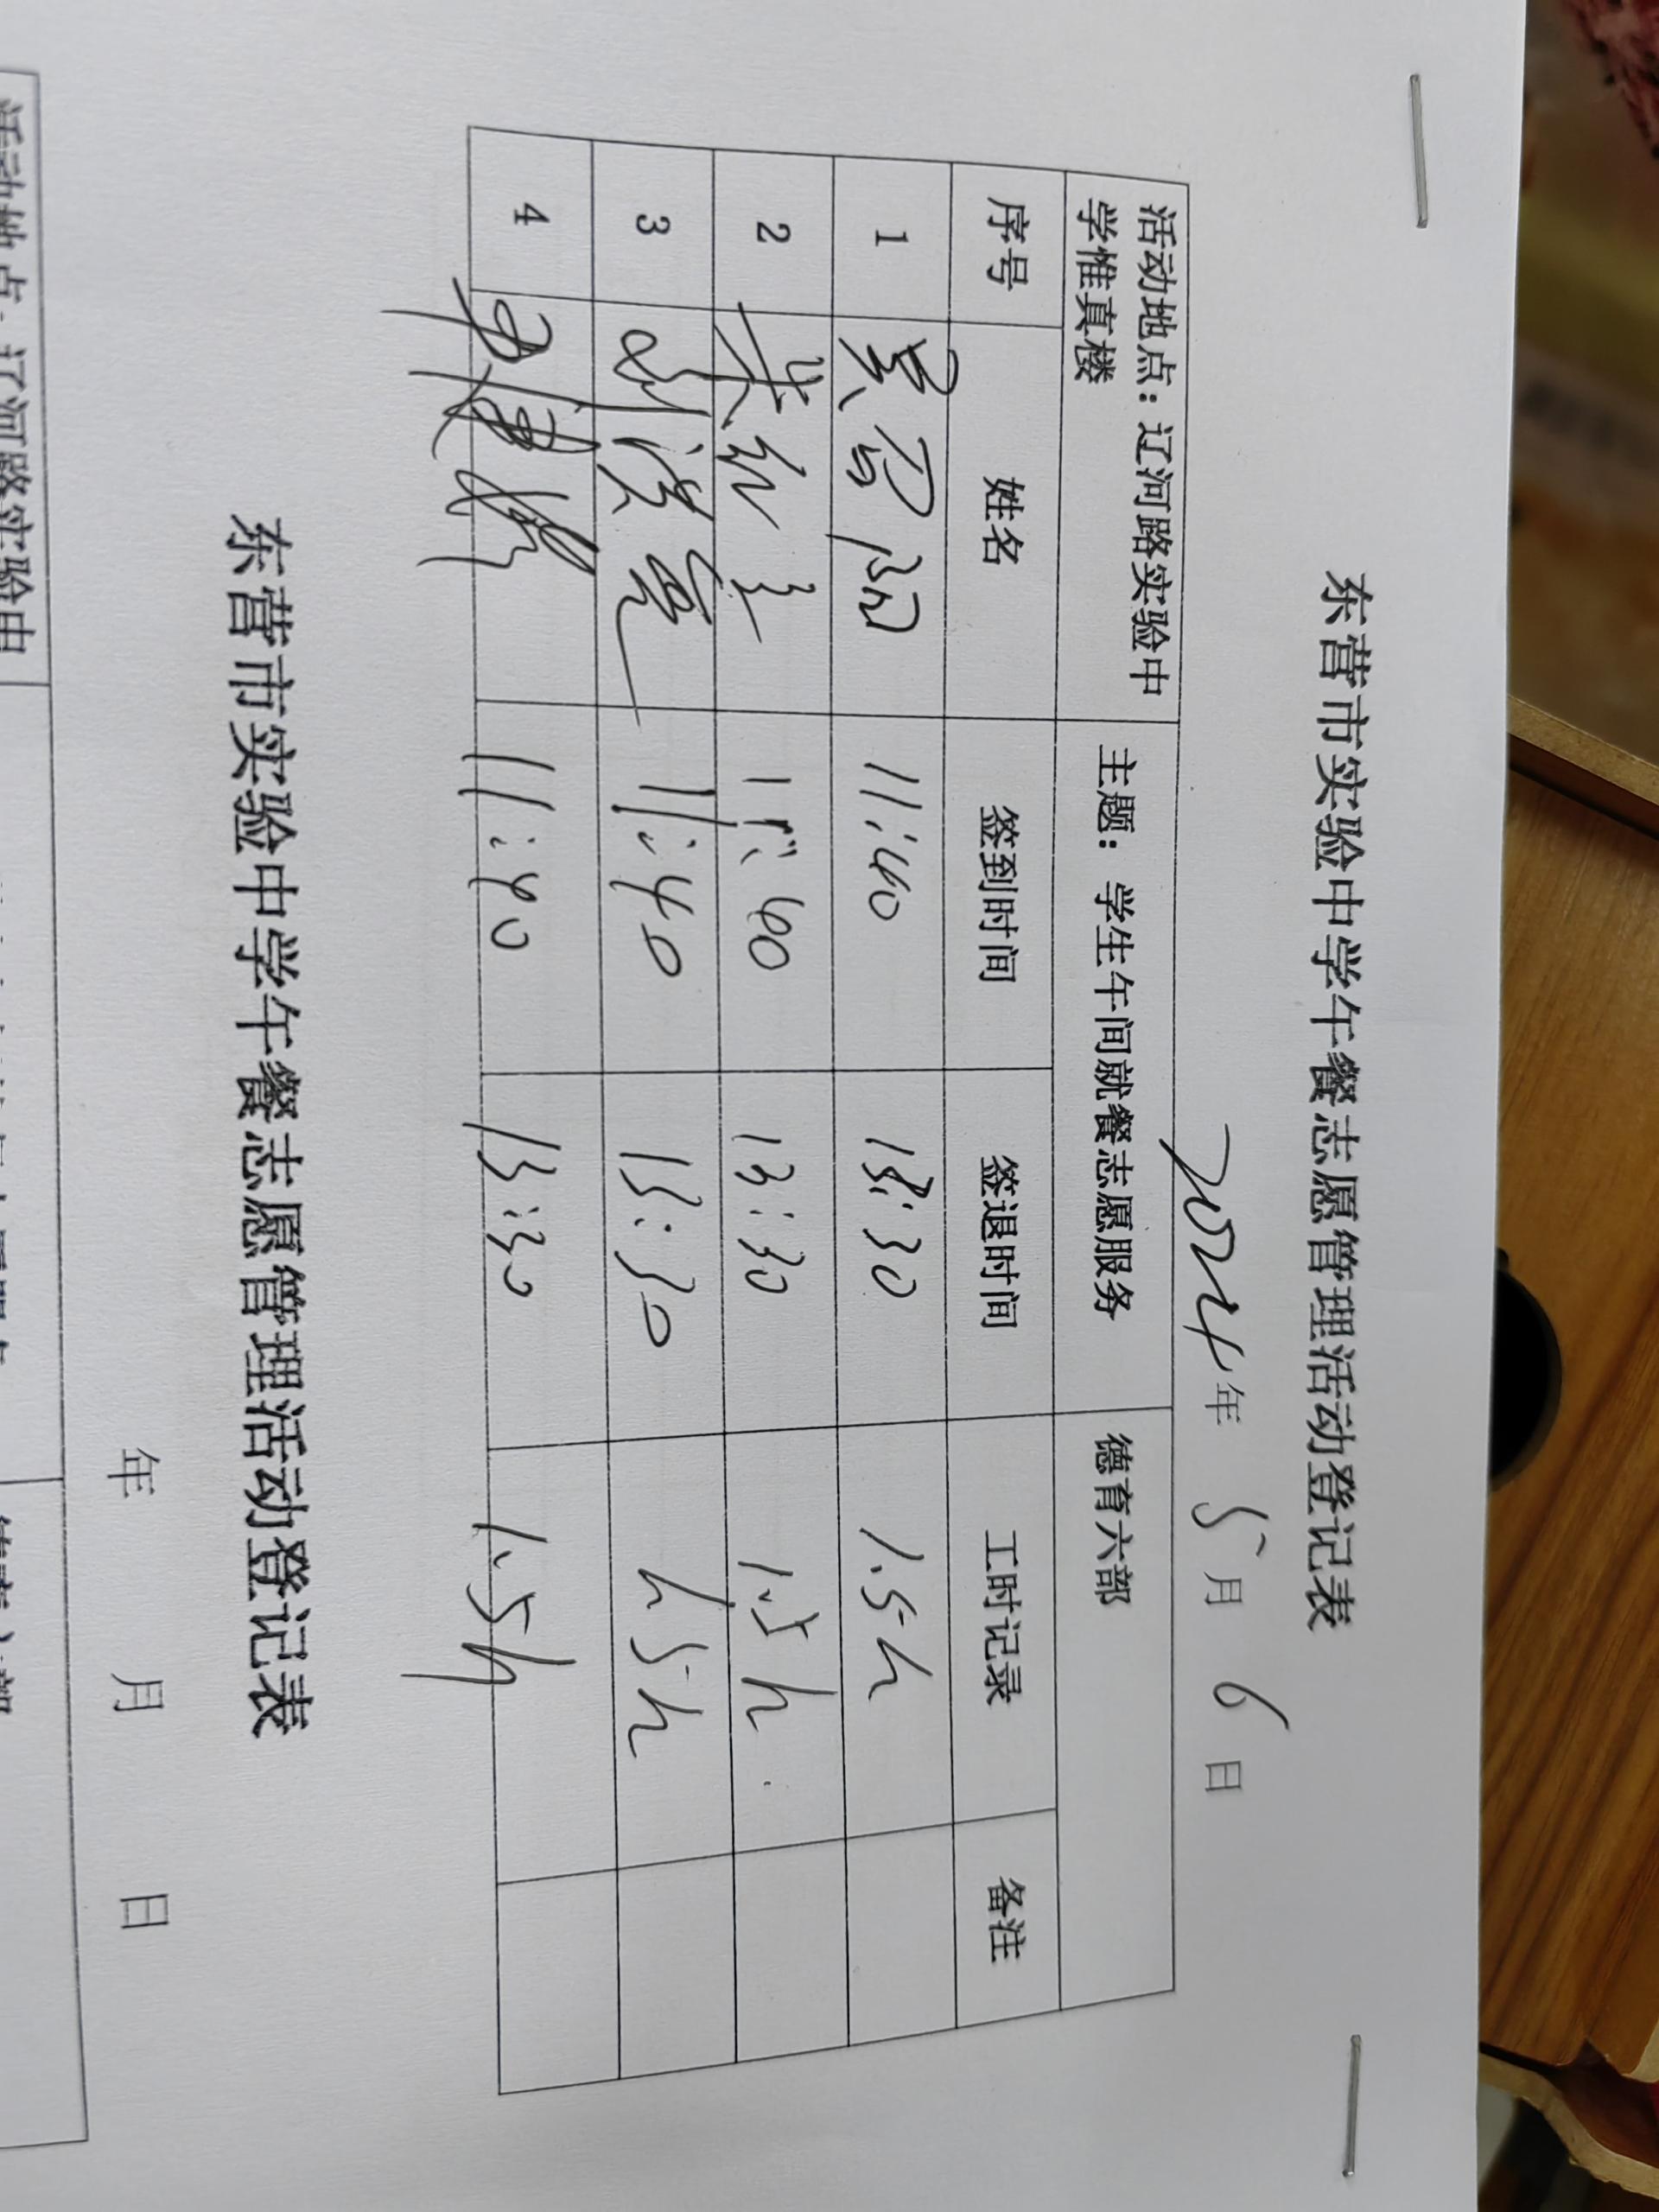 东营市实验中学午餐志愿管理活动登记表
2024年 5月 6日
活动地点：辽河路实验中学惟真楼 主题：学生午间就餐志愿服务 德育六部
序号 姓名 签到时间 签退时间 工时记录 备注
1 11:40 13:30 1.5h
2 11:40 13:30 1.5h
3 11:40 13:30 1.5h
4 11:40 13:30 1.5h
东营市实验中学午餐志愿管理活动登记表
年 月 日
活动地点：辽河路实验中